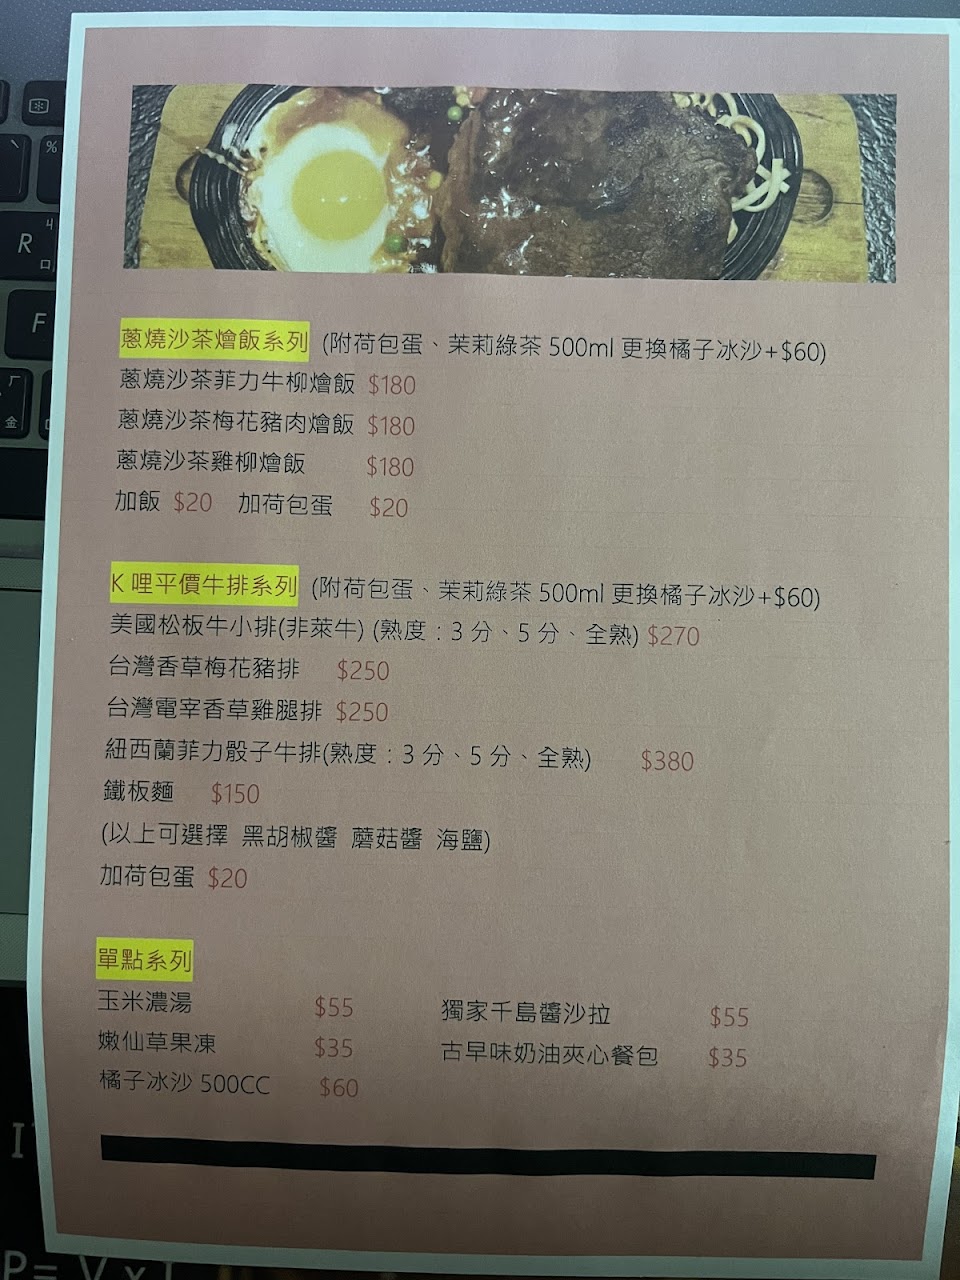 蔥燒沙茶燴飯系列 (附荷包蛋、茉莉綠茶 500ml 更換橘子冰沙+$60)
蔥燒沙茶菲力牛柳燴飯 $180
蔥燒沙茶梅花豬肉燴飯 $180
蔥燒沙茶雞柳燴飯 $180
加飯 $20 加荷包蛋 $20
K 哩平價牛排系列 (附荷包蛋、茉莉綠茶 500ml 更換橘子冰沙+$60)
美國松板牛小排(非萊牛) (熟度：3 分、5 分、全熟) $270
台灣香草梅花豬排 $250
台灣電宰香草雞腿排 $250
紐西蘭菲力骰子牛排(熟度：3 分、5 分、全熟) $380
鐵板麵 $150
(以上可選擇 黑胡椒醬 蘑菇醬 海鹽)
加荷包蛋 $20
單點系列
玉米濃湯 $55 獨家千島醬沙拉 $55
嫩仙草果凍 $35 古早味奶油夾心餐包 $35
橘子冰沙 500CC $60
%
R
4
口
F
厂
金
P= V x I